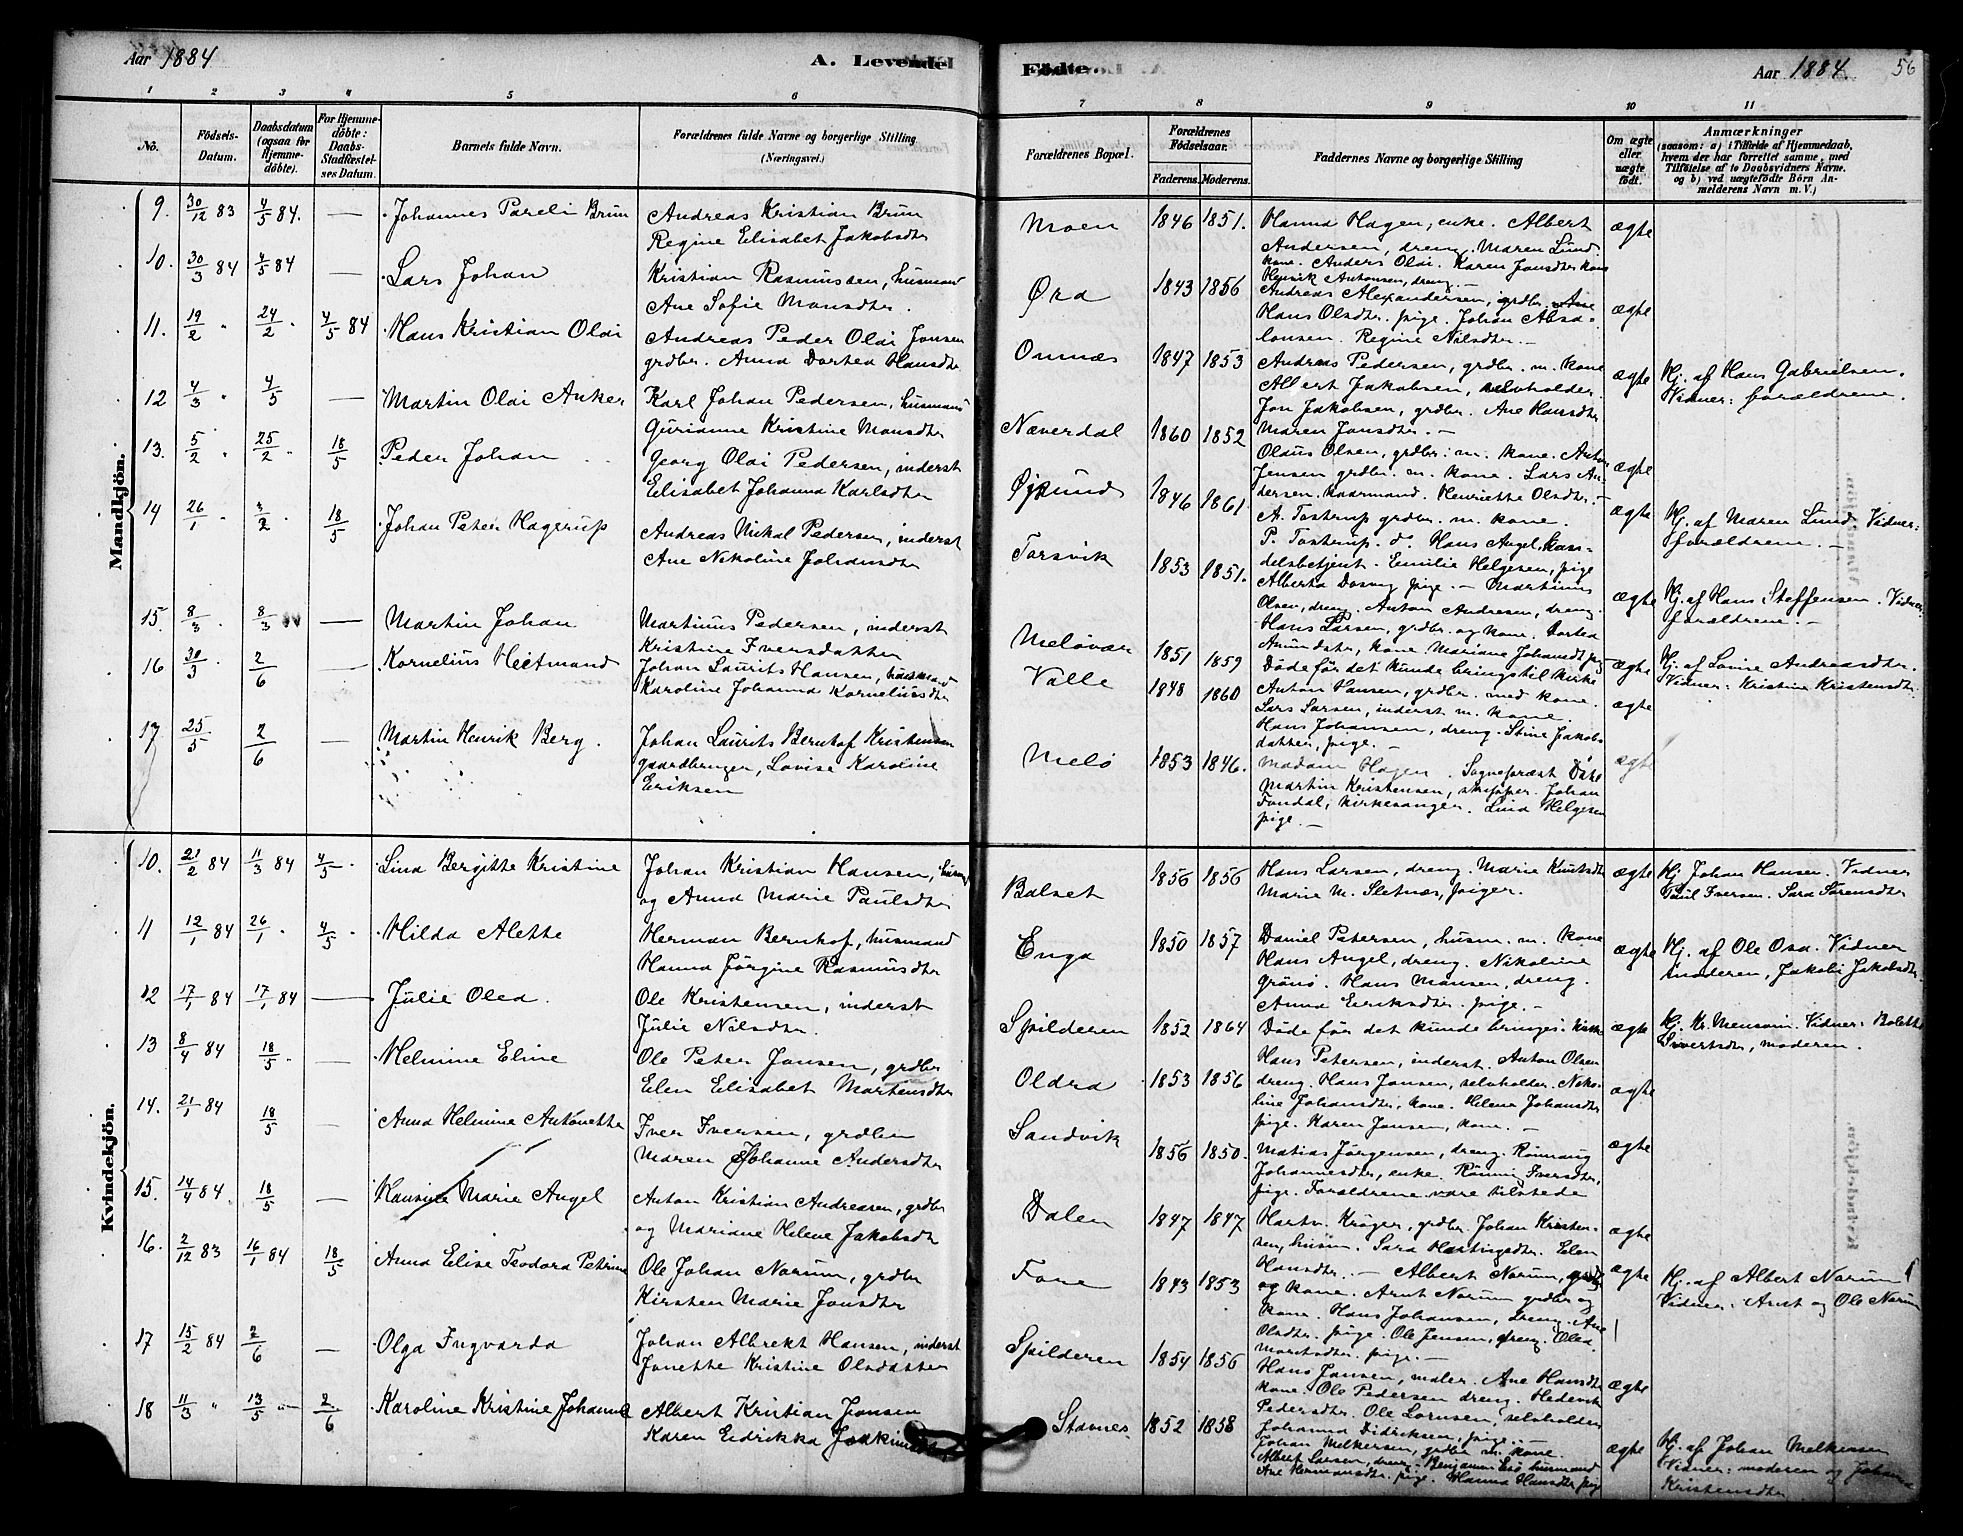 Aar 1884
A. Levende
Fødte.
Aar 1884.
56
1 2 3 4 5 6
7 8 9 10 11
No.
Födsels-Datum.
Daabsdatum (ogsaa for Hjemme-döbte).
For Hjemme-döbte: Daabs-Stadfæstel-ses Datum.
Barnets fulde Navn.
Forældrenes fulde Navne og borgerlige Stilling (Næringsvei.)
Forældrenes Bopæl.
Forældrenes Födselsaar.
Faderens. Moderens.
Faddernes Navne og borgerlige Stilling
Om ægte eller uægte födt.
Anmærkninger
(saasom: a) i Tilfælde af Hjemmedaab, hvem der har forrettet samme, med Tilföielse af to Daabsvidners Navne. og b) ved uægtefödte Börn An-melderens Navn m. V.)
Mandkjön.
9. 30/12 83 4/5 84. — Johannes Pareli Brun
Andreas Kristian Brun
Regine Elisabet Jakobsdtr
Moen 1846 1851.
Hanna Hagen, enke. Albert
Andersen, dreng. Maren Lund
kone. Anders Olai. Karen Jonsdtr kone
Henrik Antonsen, dreng. —
ægte
10. 30/3 84 4/5 84 — Lars Johan
Kristian Rasmussen, husmand
Ane Sofie Monsdtr.
Øra 1843 1856
Andreas Alexandersen, grdbr. Ane
Hans Olsdtr. pige. Johan Absa-
lonsen. Regine Nilsdtr. —
ægte
11. 19/2 " 24/2 " 4/5 84 Hans Kristian Olai
Andreas Peder Olai Jonsen
grdbr. Anna Dortea Hansdtr
Omnæs 1847 1853
Andreas Pedersen, grdbr. m. kone
Albert Jakobsen, selvholder.
Jon Jakobsen, grdbr. Ane Hansdtr
Maren Jonsdtr. —
ægte
Hj. af Hans Gabrielsen.
Vidner: forældrene.
12 4/3 " 4/5 — Martin Olai Anker
Karl Johan Pedersen, husmand
Gurianne Kristine Monsdtr
Næverdal 1860 1852
Olaus Olsen, grdbr. m. kone. Anton
Jensen grdbr. m. kone. Lars An-
dersen. Henriette Olsdtr. —
ægte
13. 5/2 " 25/2 " 18/5 Peder Johan
Georg Olai Pedersen, inderst
Elisabet Johanna Karlsdtr
Øysund 1846 1861.
A. Tostrup grdbr. m. kone.
P. Tostrup. do. Hans Angel, han-
delsbetjent. Emilie Helgesen, pige
ægte
Hj. af Maren Lund. Vidner:
forældrene. —
14 26/1 " 3/2 " 18/5 Johan Peter Hagerup
Andreas Mikal Pedersen, inderst
Ane Nikoline Johansdtr
Torsvik 1853 1851.
Alberta Dosvig pige. — Martinus
Olsen, dreng. Anton Andresen, dreng.
Hans Larsen, grdbr. og kone. Dortea
Amundstr, kone Mariane Johansdtr pige
ægte
Hj. af Hans Steffensen. Vidner:
forældrene. —
15. 8/3 " 8/3 — Martin Johan
Martinus Pedersen, inderst
Kristine Iversdatter
Meløvær 1851 1859
Døde før det kunde bringes til kirke
ægte
Hj. af Lovise Andreasdtr.
Vidner: Kristine Kristensdtr.
16 30/3 " 2/6 — Kornelius Heitmand
Johan Laurits Hansen, husmand
Karoline Johanna Korneliusdtr
Valle 1848 1860
Anton Hansen, grdbr. med kone.
Lars Larsen, inderst m. kone.
Hans Johansen, dreng. Stine Jakobs-
datter, pige. —
ægte
17 25/5 2/6 — Martin Henrik Berg.
Johan Laurits Bernhof Kristensen
gaardbruger, Lovise Karoline
Eriksen
Melø 1853 1846.
Madam Hagen. Sognepræst
Martin Kristensen, skipper. Johan
Fondal, kirkesanger. Lina Helgesen
pige. —
ægte
Kvindekjön.
10. 21/2 84 11/3 84 4/5 " Lina Bergitte Kristine
Johan Kristian Hansen, husm.
og Anna Marie Paulsdtr
Balset 1856 1856
Hans Larsen, dreng. Marie Knutsdtr
Marie M. Sletnæs, piger.
ægte
Hj. Johan Hansen. Vidner
Paul Iversen. Sara Sørensdtr
11 12/1 84 26/1 " 4/5 " Hilda Alette
Herman Bernhof, husmand
Hanna Jørgine Rasmusdtr
Enga 1850 1857
Daniel Petersen, husm. m. kone
Hans Angel, dreng. Nikoline
Grønø. Hans Monsen, dreng.
Anna Eriksdtr. pige. —
ægte
Hj. af Ole Osa. Vidner
moderen, Jakobi Jakobsdtr.
12 17/1 84 17/1 84 — Julie Olea.
Ole Kristensen, inderst
Julie Nilsdtr.
Spilderen 1852 1864
Døde før det kunde bringes i kirke
ægte
Hj. Kr. Mensøin. Vidner: Bolette
Sivertsdtr, moderen.
13 8/4 84 18/5 " — Helmine Eline
Ole Peter Jonsen, grdbr
Elen Elisabet Martensdtr
Oldra 1853 1856
Hans Petersen, inderst. Anton Olsen
dreng. Hans Jonsen, selvholder. Niko-
line Johansdtr, kone. Helene Johansdtr
pige. Karen Jonsen, kone. —
ægte
14. 21/1 84 18/5 — Anna Helmine Antonette
Iver Iversen, grdbr
Maren Johanne Andersdtr
Sandvik 1856 1850.
Matias Jørgensen, dreng. Rønnaug
Johannesdtr, enke. Rønnig Iversdtr,
pige. Forældrene vare tilstede
ægte
15. 14/4 84. 18/5 — Hansine Marie Angel
Anton Kristian Andreasen, grdbr
og Mariane Helene Jakobsdtr
Dalen 1847 1847
Hartv. Krøger, grdbr. Johan Kristen-
sen, husm. Sara Hartvigsdtr. Elen
Hansdtr. —
ægte
16. 2/12 83 16/1 84 18/5 Anna Elise Teodora Petrine
Ole Johan Norum, grdbr
Kirsten Marie Jonsdtr
Fore 1843 1853
Albert Norum, grdbr
og kone. Arnt Norum grdbr og
kone. Hans Johansen, dreng. Ane
Olsdtr. pige. Ole Jensen, dreng. Olea
pige. —
ægte
Hj. af Albert Norum
Vidner: Arnt og Ole Norum
17 15/2 84 2/6 — Olga Ingvarda
Johan Albrekt Hansen, inderst
Jonette Kristine Olsdatter
Spilderen 1854 1856
Hans Jonsen, maler. Ane Hansdtr
kone. Ole Pedersen dreng. Hedevik
Pedersdtr. Ole Lornsen, selvholder
Johanna Didriksen, pige. —
ægte
18 11/3 " 13/5 " 2/6 Karoline Kristine Johanna
Albert Kristian Jonsen
Karen Eidrikka Joakimsdtr
Støvnes. 1852 1858
Johan Melkersen, grdbr m. kone.
Albert Larsen, dreng. Benjamin husmand
Ane Hermansdtr. pige. Hanna Hansdtr pige
ægte
Hj. af Johan Melkersen
Vidner: moderen og Johanna
Kristensdtr